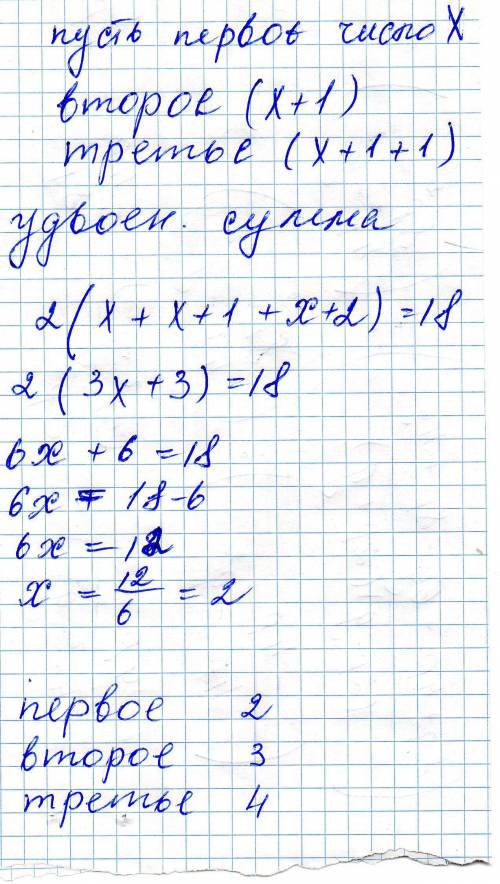 пусть первое число X
второе (x+1)
третье (x+1+1)
удвоен. сумма
2(x+x+1+x+2)=18
2(3x+3)=18
6x+6=18
6x=18-6
6x=12
x=12/6=2
первое 2
второе 3
третье 4